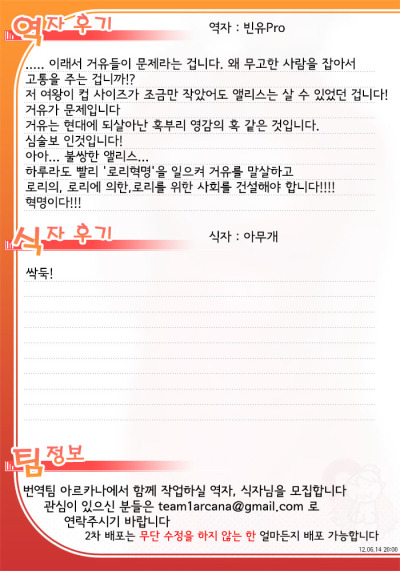 역자 후기
역자 : 빈유Pro
..... 이래서 거유들이 문제라는 겁니다. 왜 무고한 사람을 잡아서
고통을 주는 겁니까!?
저 여왕이 컵 사이즈가 조금만 작았어도 앨리스는 살 수 있었던 겁니다!
거유가 문제입니다
거유는 현대에 되살아난 혹부리 영감의 혹 같은 것입니다.
심술보 인것입니다!
아아... 불쌍한 앨리스...
하루라도 빨리 '로리혁명'을 일으켜 거유를 말살하고
로리의, 로리에 의한,로리를 위한 사회를 건설해야 합니다!!!!
혁명이다!!!
식자 후기
식자 : 아무개
싹둑!
팀정보
번역팀 아르카나에서 함께 작업하실 역자, 식자님을 모집합니다
관심이 있으신 분들은 team1arcana@gmail.com 로
연락주시기 바랍니다
2차 배포는 무단 수정을 하지 않는 한 얼마든지 배포 가능합니다
12.06.14 20:00